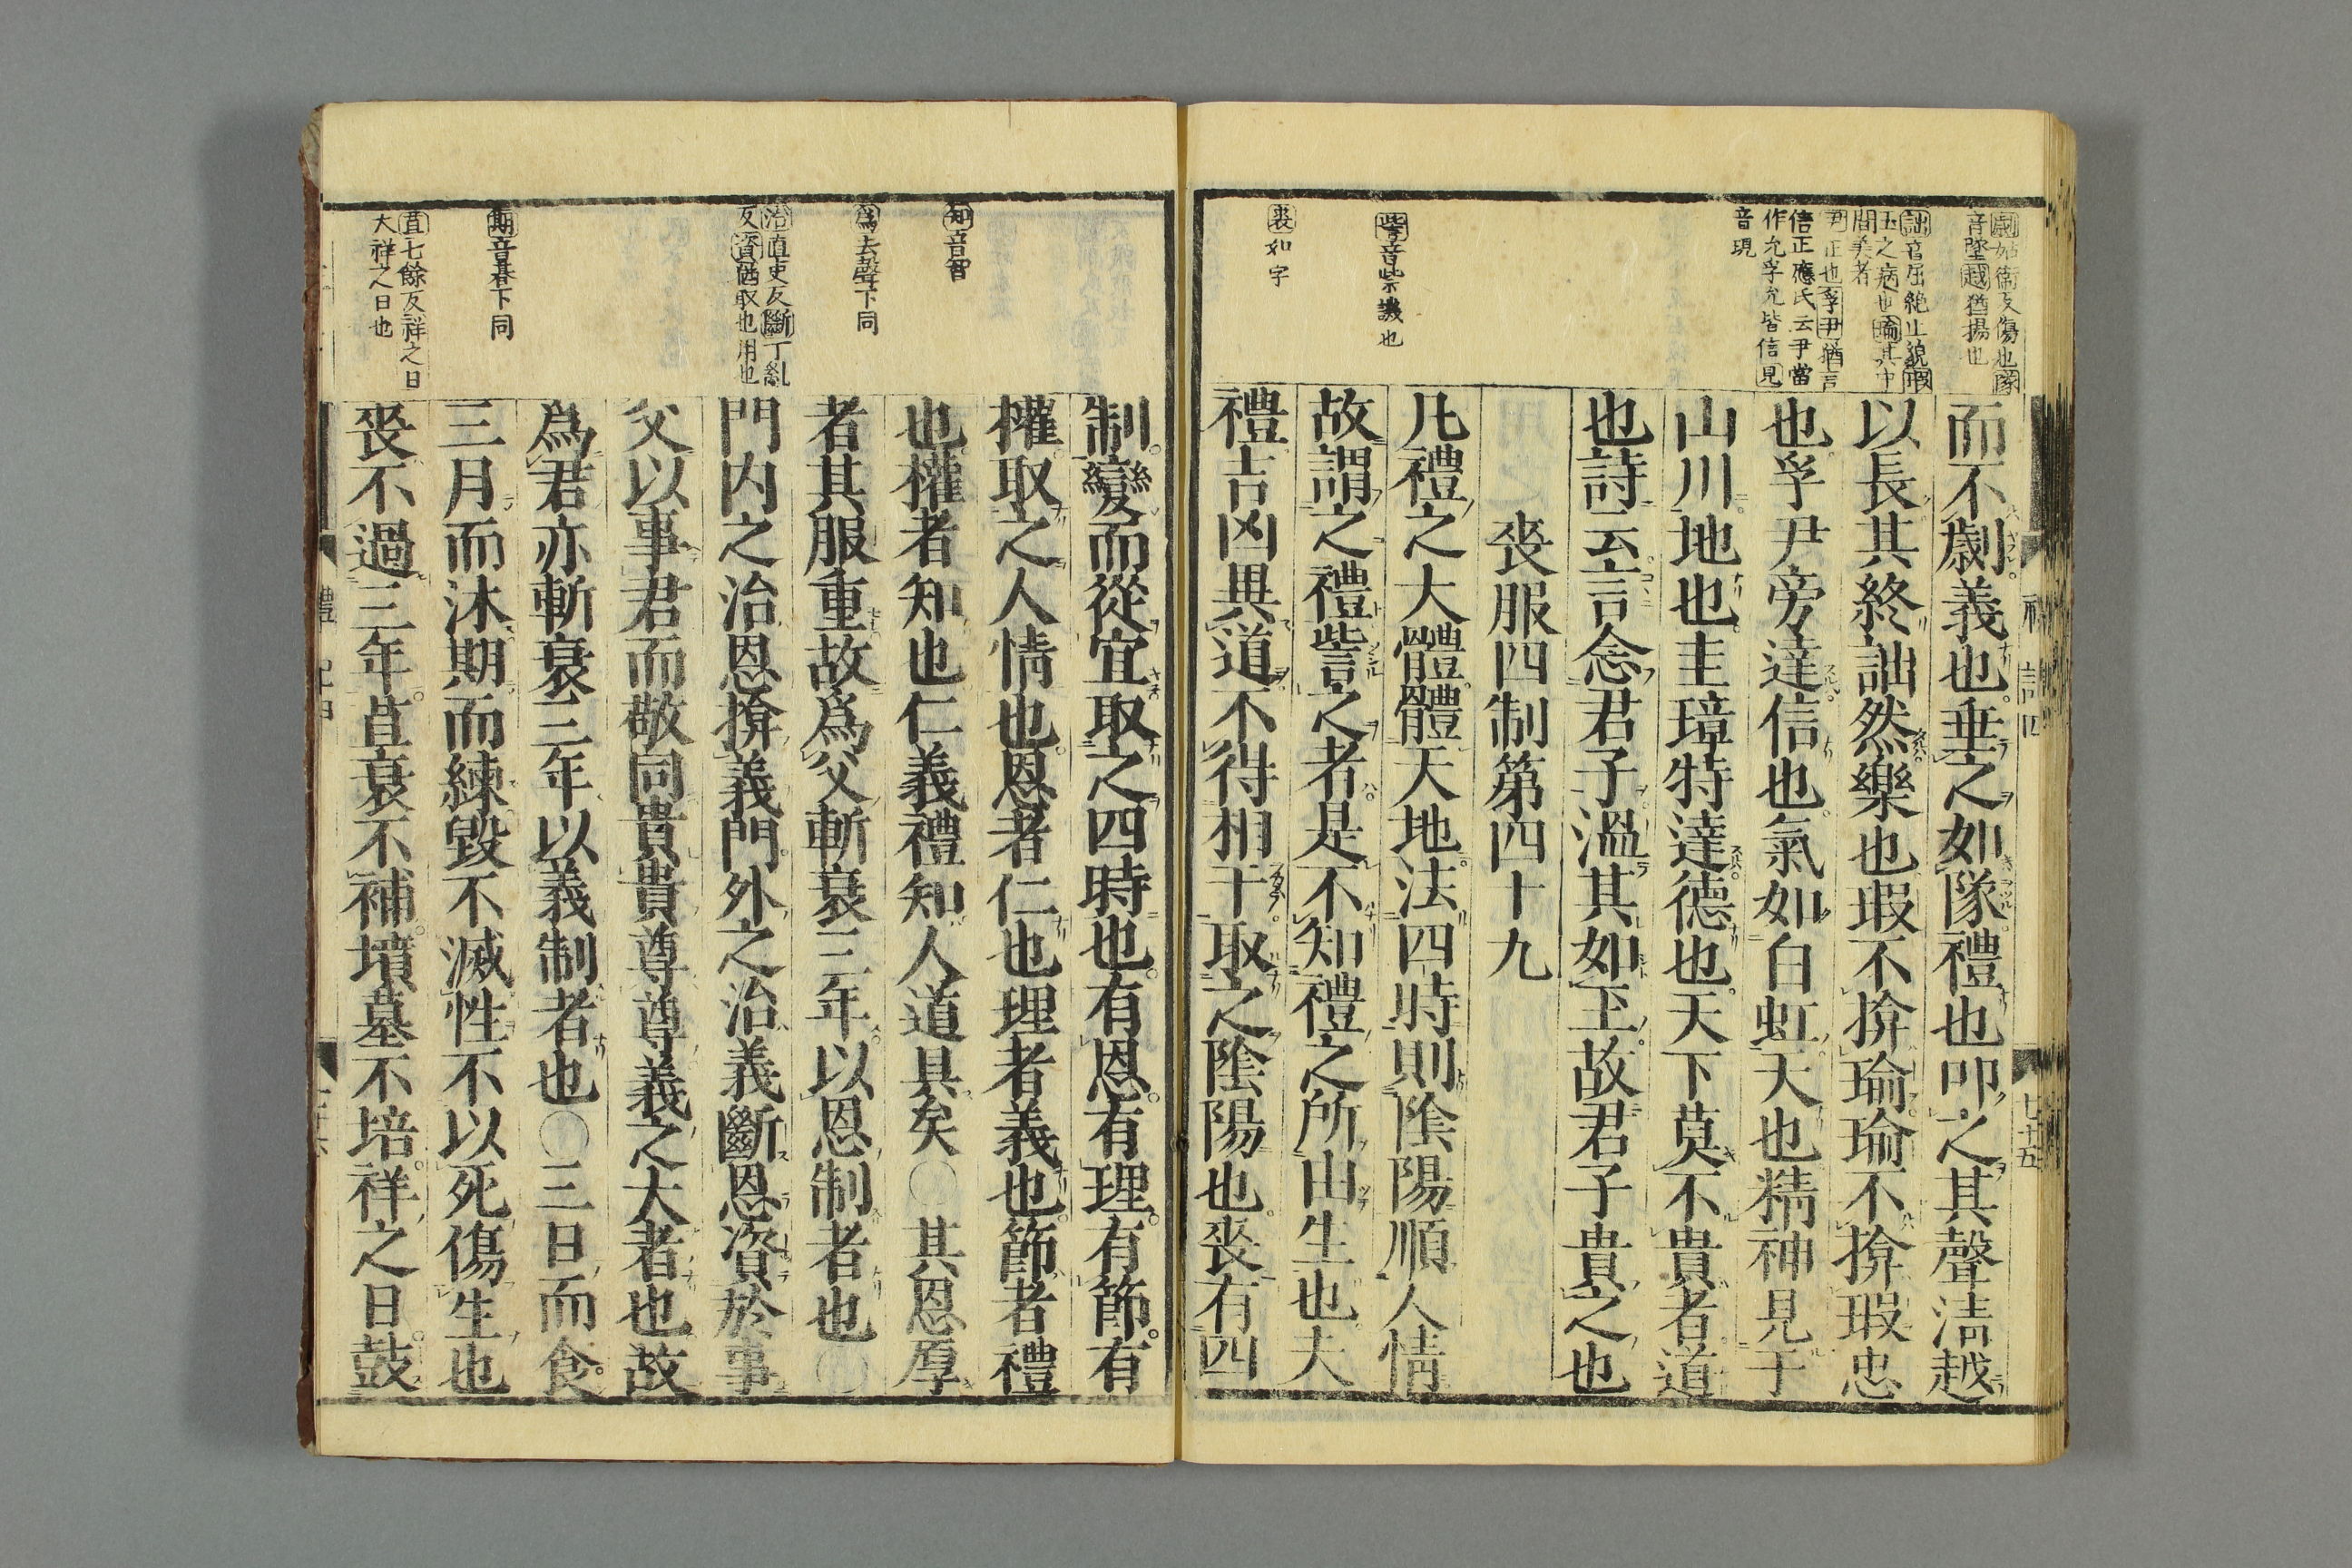 劌姑衛反傷也隊
音墜越猶揚也
詘音屈絶止貌瑕
玉之病也瑜其中
間美者
尹正也孚尹猶言
信正應氏云尹當
作允孚允皆信見
音現
訾音紫譏也
喪如字
而不劌義也垂之如隊禮也叩之其聲清越
以長其終詘然樂也瑕不揜瑜瑜不揜瑕忠
也孚尹旁達信也氣如白虹天也精神見于
山川地也圭璋特達德也天下莫不貴者道
也詩云言念君子溫其如玉故君子貴之也
喪服四制第四十九
凡禮之大體體天地法四時則陰陽順人情
故謂之禮訾之者是不知禮之所由生也夫
禮吉凶異道不得相干取之陰陽也喪有四
七十五
知音智
爲去聲下同
治直吏反斷丁亂
反資猶取也用也
期音朞下同
苴七餘反祥之日
大祥之日也
制變而從宜取之四時也有恩有理有節有
權取之人情也恩者仁也理者義也節者禮
也權者知也仁義禮知人道具矣○其恩厚
者其服重故爲父斬衰三年以恩制者也○
門内之治恩揜義門外之治義斷恩資於事
父以事君而敬同貴貴尊尊義之大者也故
爲君亦斬衰三年以義制者也○三日而食
三月而沐期而練毀不滅性不以死傷生也
喪不過三年苴衰不補墳墓不培祥之日鼓